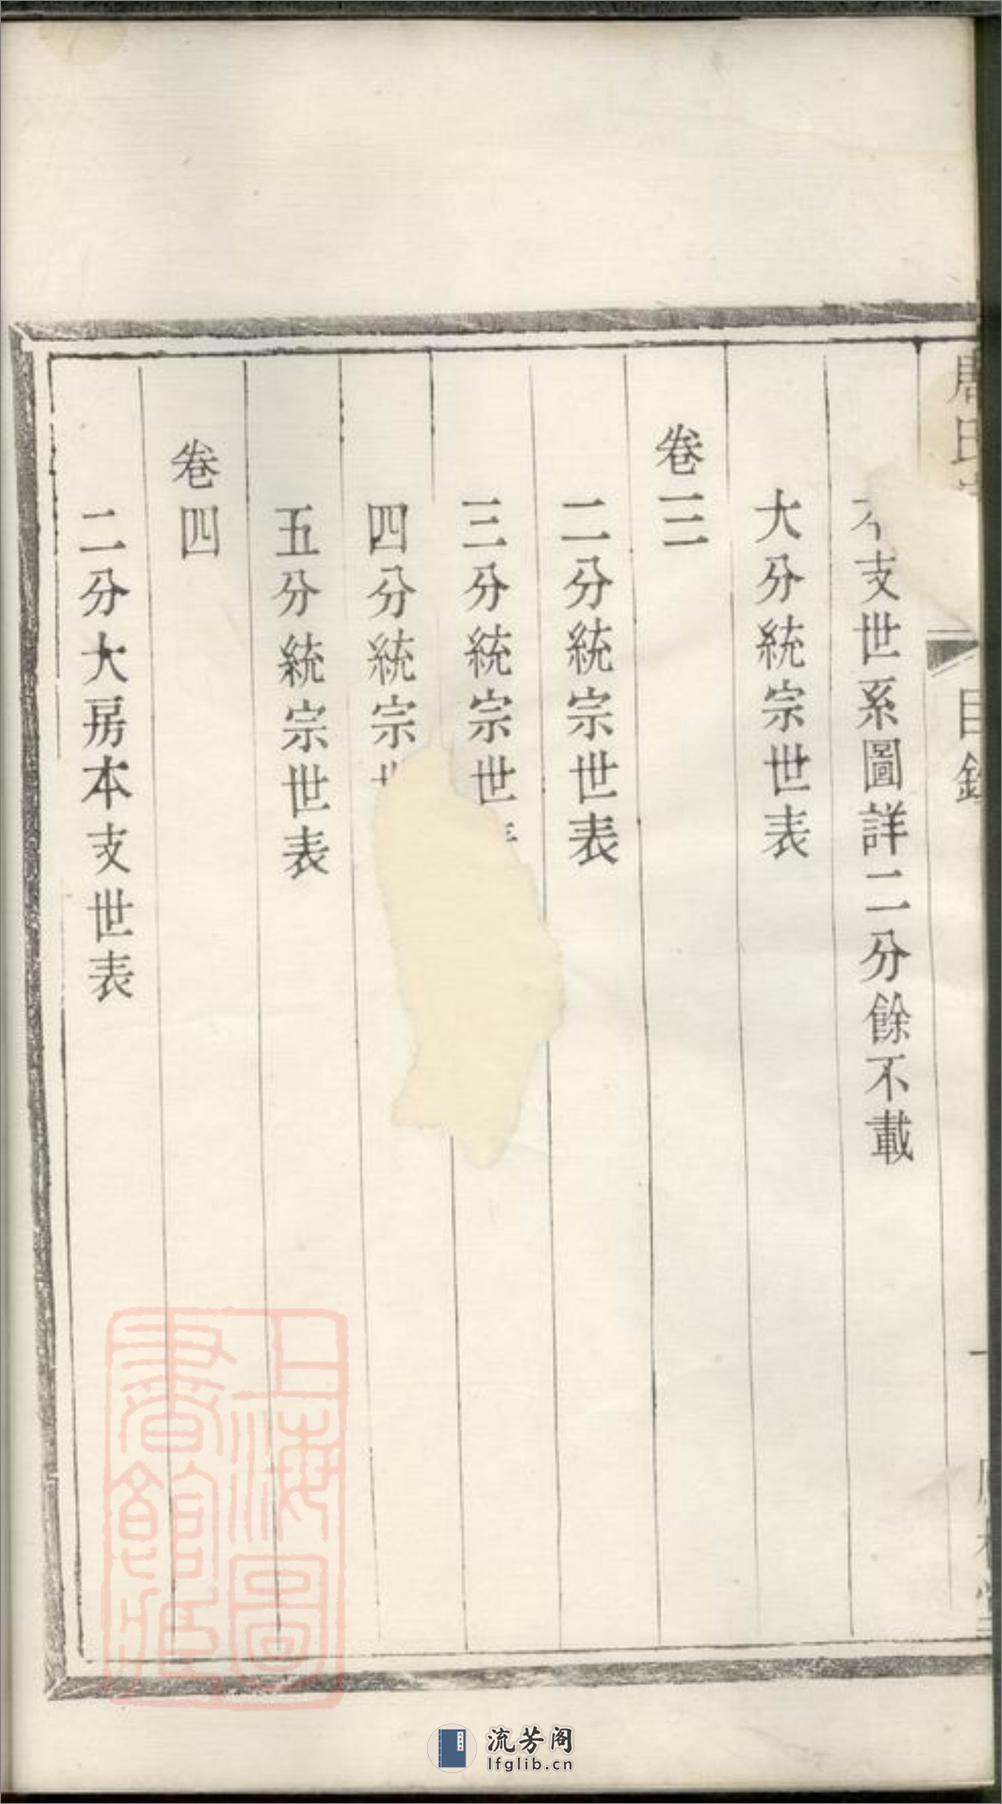 氏
目
支世系圖詳二分餘不載
大分統宗世表
卷三
二分統宗世表
三分統宗世
四分統宗
五分統宗世表
卷四
二分大房本支世表
上海圖書館藏
流芳阁
lfglib.cn